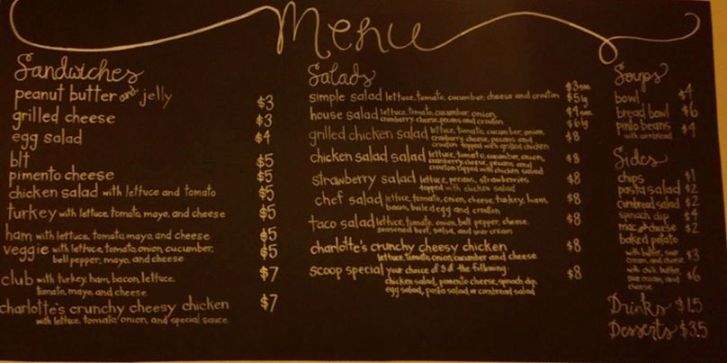 Menu
Sandwiches
peanut butter and jelly $3
grilled cheese $3
egg salad $4
blt $5
pimento cheese $5
chicken salad with lettuce and tomato $5
turkey with lettuce, tomato, mayo, and cheese $5
ham with lettuce, tomato, mayo, and cheese $5
veggie with lettuce, tomato, onion, cucumber, $5
bell pepper, mayo, and cheese
club with turkey, ham, bacon, lettuce, $7
tomato, mayo, and cheese
charlotte's crunchy cheesy chicken $7
with lettuce, tomato, onion, and special sauce
Salads
simple salad lettuce, tomato, cucumber, cheese and crouton $3 sm $5 lg
house salad lettuce, tomato, cucumber, onion,
cranberry, cheese, pecans, and crouton $6 lg
grilled chicken salad lettuce, tomato, cucumber, onion, $8
cranberry, cheese, pecans, and
crouton topped with grilled chicken
chicken salad salad lettuce, tomato, cucumber, onion, $8
cranberry, cheese, pecans, and
crouton topped with chicken salad
strawberry salad lettuce, pecans, strawberries $8
topped with chicken salad
chef salad lettuce, tomato, onion, cheese, turkey, ham, $8
bacon, boiled egg and crouton
taco salad lettuce, tomato, onion, bell pepper, cheese, $8
seasoned beef, salsa, and sour cream
charlotte's crunchy cheesy chicken $8
lettuce, tomato, onion, cucumber and cheese
scoop special your choice of 3 of the following: $8
chicken salad, pimento cheese, spinach dip,
egg salad, pasta salad or cornbread salad
Soups
bowl $4
bread bowl $6
pinto beans $4
with cornbread
Sides
chips $1
pasta salad $2
cornbread salad $2
spinach dip $4
mac & cheese $2
baked potato
with butter, sour $3
cream, and cheese
$6
Drinks $1.5
Desserts $3.5